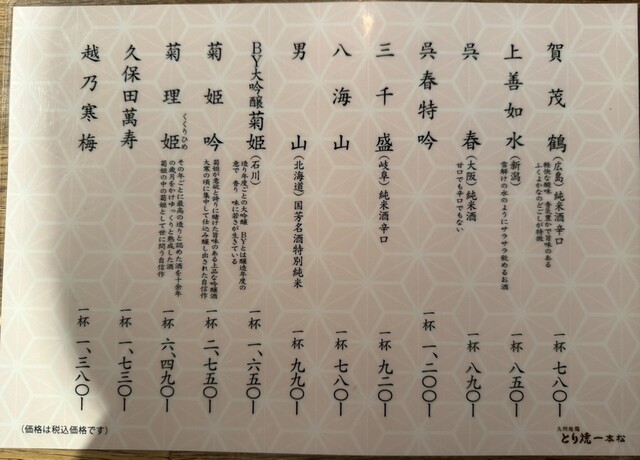 賀茂鶴(広島)純米酒辛口
軽快な酸味 香気豊かで旨味のある
ふくよかなのどごしが特徴
一杯 七八〇ー
上善如水(新潟)
雪解けの水のようにサラサラ飲めるお酒
一杯 八五〇ー
呉春(大阪)純米酒
甘口でも辛口でもない
一杯 八九〇ー
呉春特吟
一杯 一、二〇〇ー
三千盛(岐阜)純米酒辛口
一杯 九二〇ー
八海山
一杯 七八〇ー
男山(北海道)国芳名酒特別純米
一杯 九九〇ー
BY大吟醸菊姫(石川)
造り年度ごとの大吟醸 BYとは醸造年度の
意で 香り 味に若さが生きている
一杯 一、六五〇ー
菊姫吟
菊姫が意地と誇りに賭けた旨味のある上品な吟醸酒
大寒の頃に集中して仕込み醸し出された自信作
一杯 二、七五〇ー
菊理姫
くくりひめ
その年ごとに最高の造りと認めた酒を十余年
の歳月をかけゆっくりと熟成した酒
菊姫の中の菊姫として世に問う自信作
一杯 六、四九〇ー
久保田萬寿
一杯 一、七三〇ー
越乃寒梅
一杯 一、三八〇ー
(価格は税込価格です)
九州地鶏
とり焼一本松